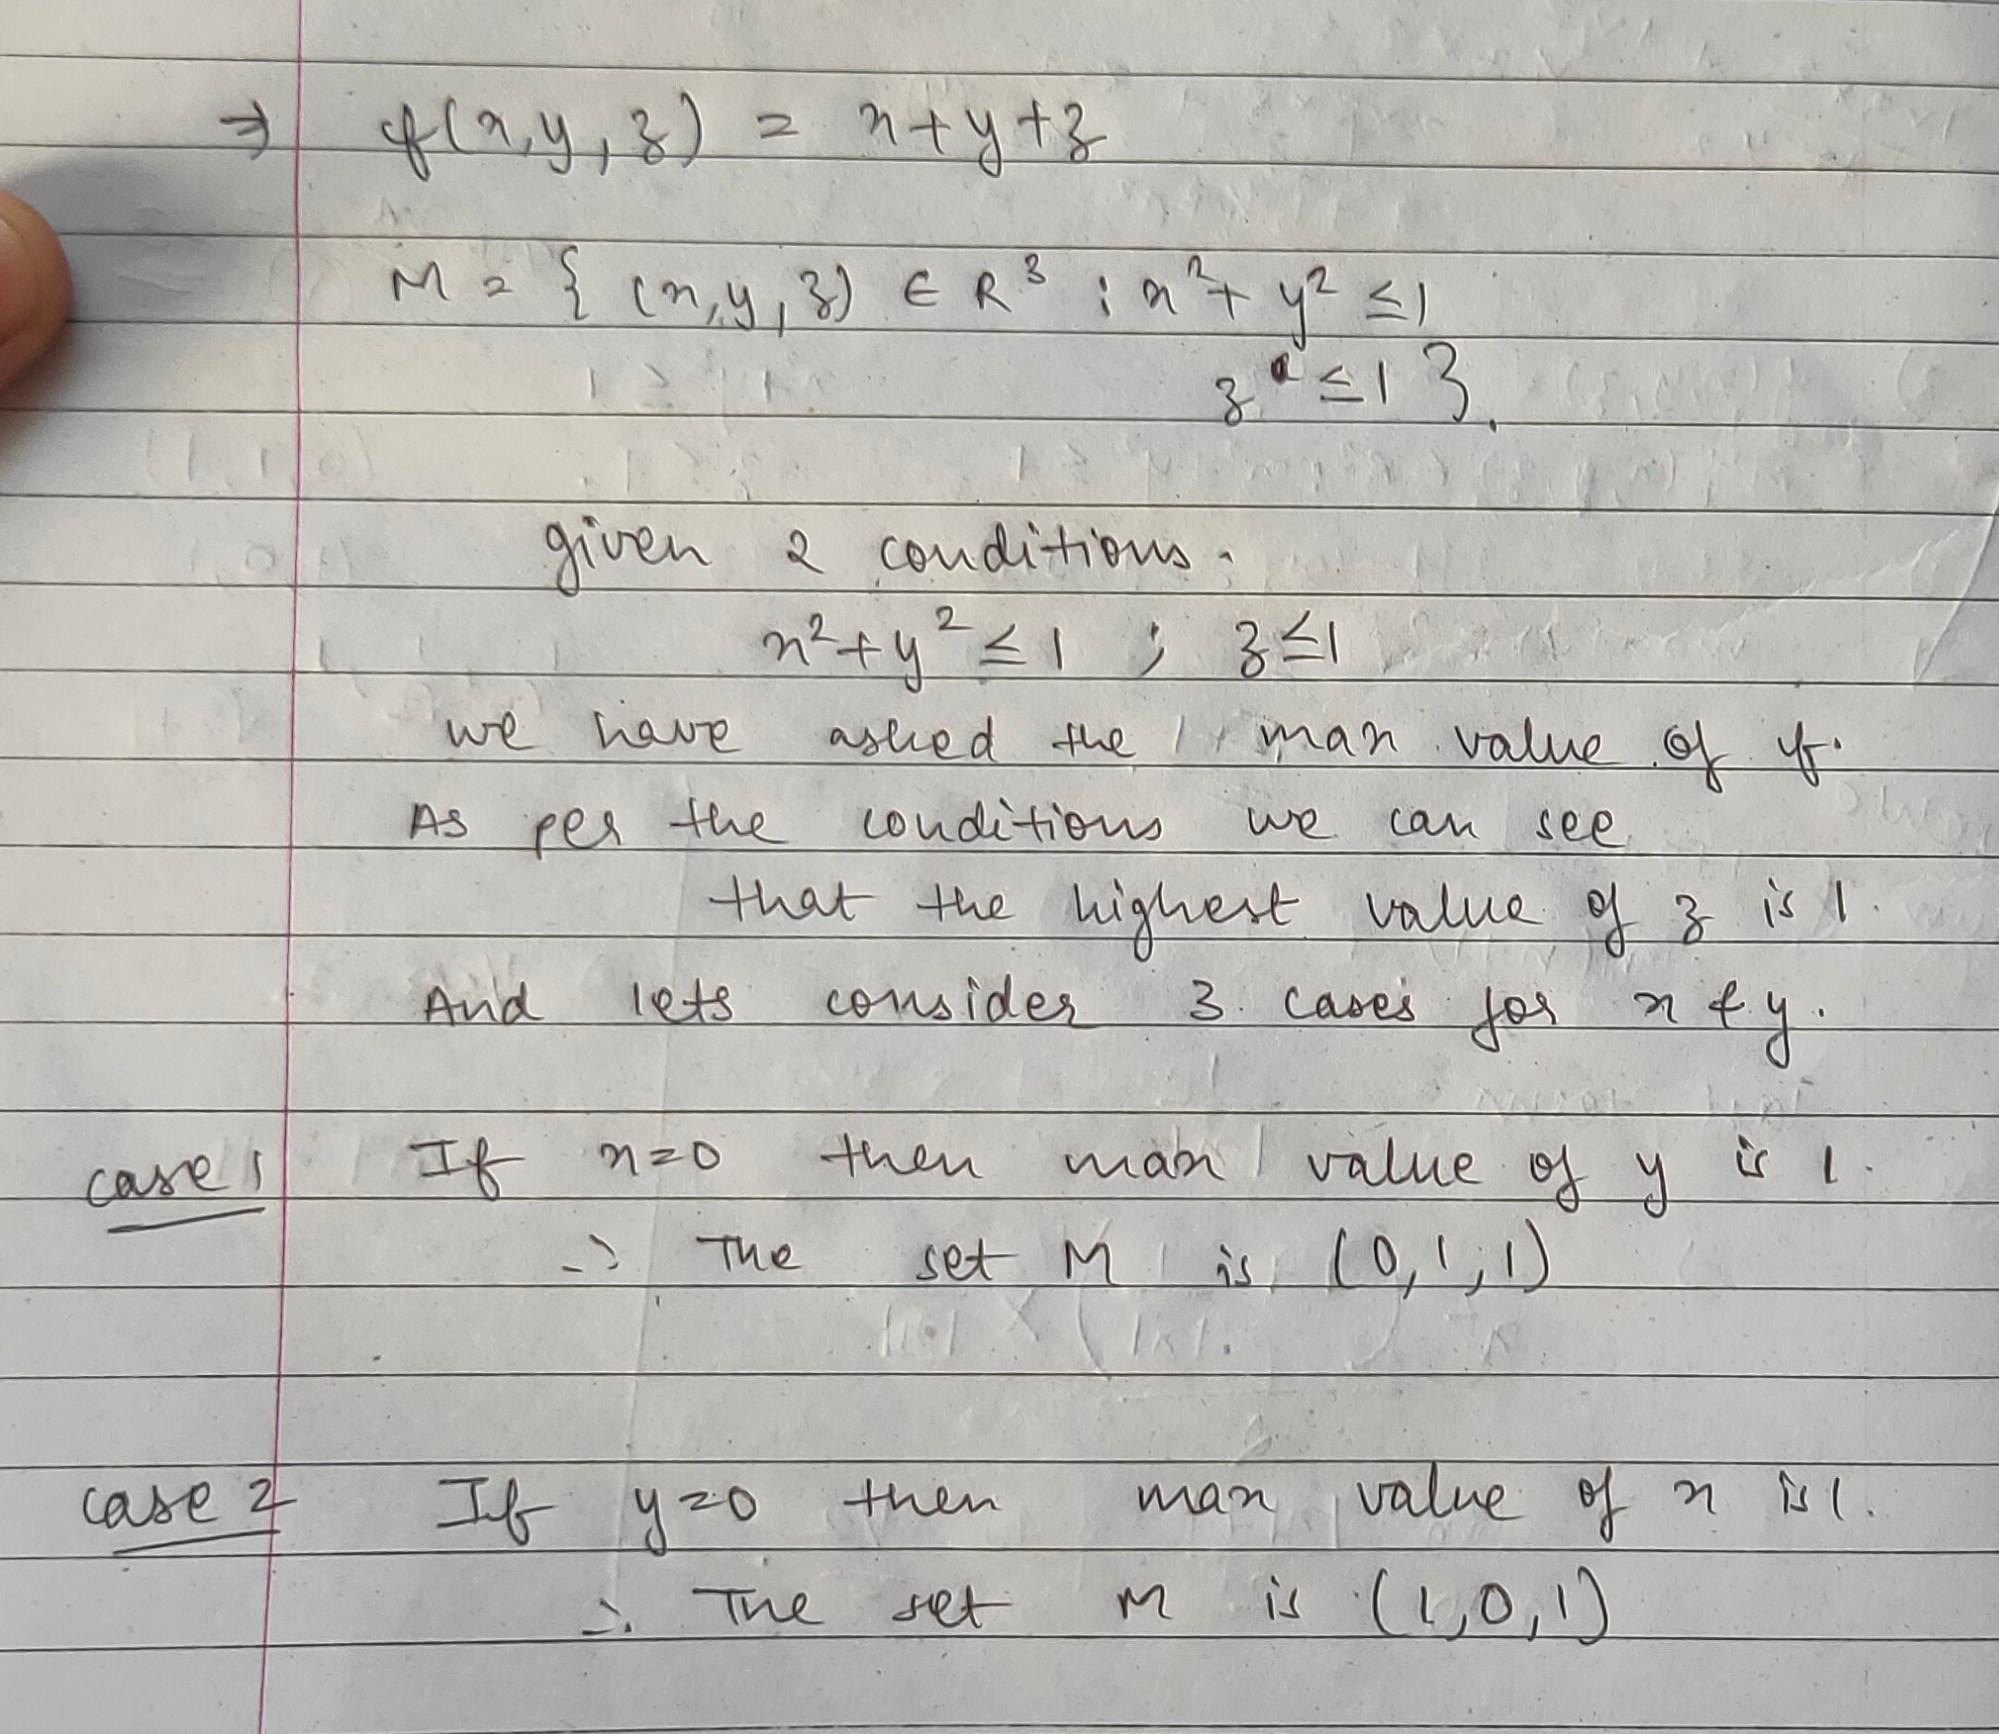 ⇒ f(x,y,z) = x+y+z
M = { (x,y,z) ∈ R³ ; x²+ y² ≤1
z ≤1 }.
given 2 conditions.
x²+y² ≤ 1 ; z≤1
we have asked the max value of f.
As per the conditions we can see
that the highest value of z is 1.
And lets consider 3 cases for x & y.
case 1 If x=0 then max value of y is 1.
∴ The set M is (0,1,1)
case 2 If y=0 then max value of x is 1.
∴ The set M is (1,0,1)